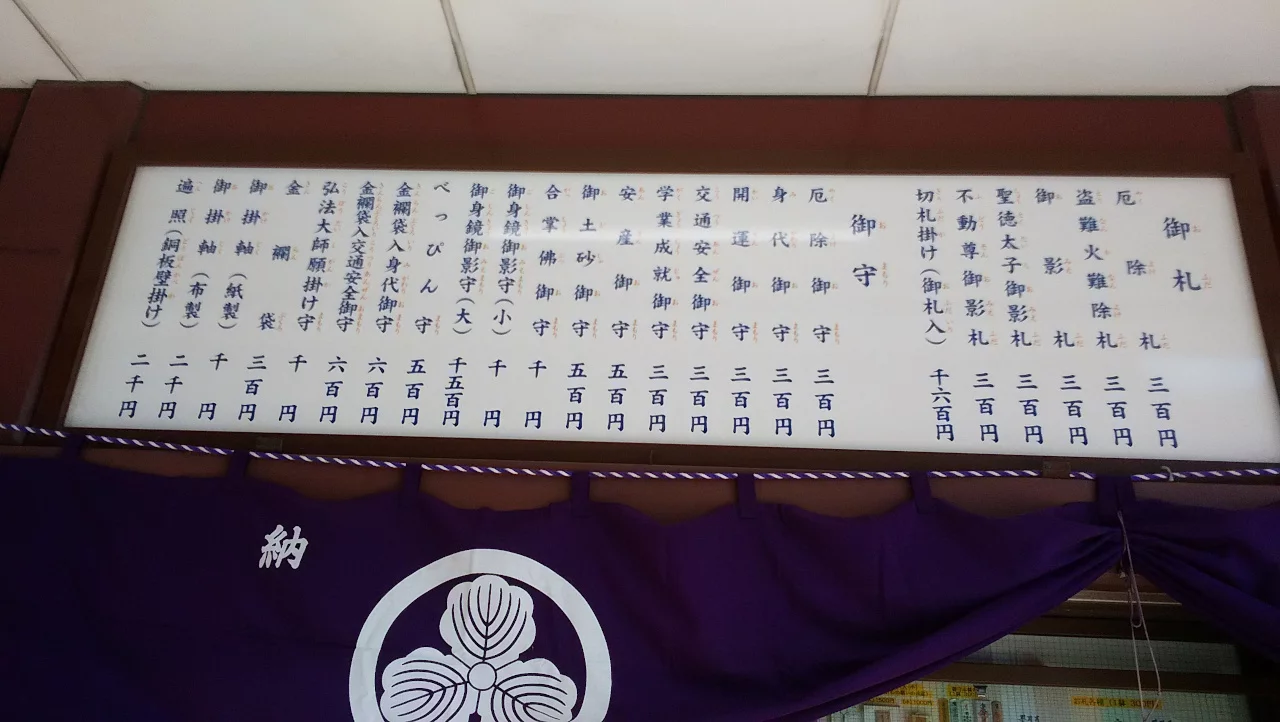 御札
厄除札 三百円
盗難火難除札 三百円
御影札 三百円
聖徳太子御影札 三百円
不動尊御影札 三百円
切札掛け（御札入） 千六百円
御守
厄除御守 三百円
身代御守 三百円
開運御守 三百円
交通安全御守 三百円
学業成就御守 三百円
安産御守 五百円
御土砂御守 五百円
合掌佛御守 千円
御身鏡御影守（小） 千円
御身鏡御影守（大） 千五百円
べっぴん守 五百円
金襴袋入身代御守 六百円
金襴袋入交通安全御守 六百円
弘法大師願掛け守 千円
金襴袋 三百円
御掛軸（紙製） 千円
御掛軸（布製） 二千円
遍照（銅板壁掛け） 二千円
納